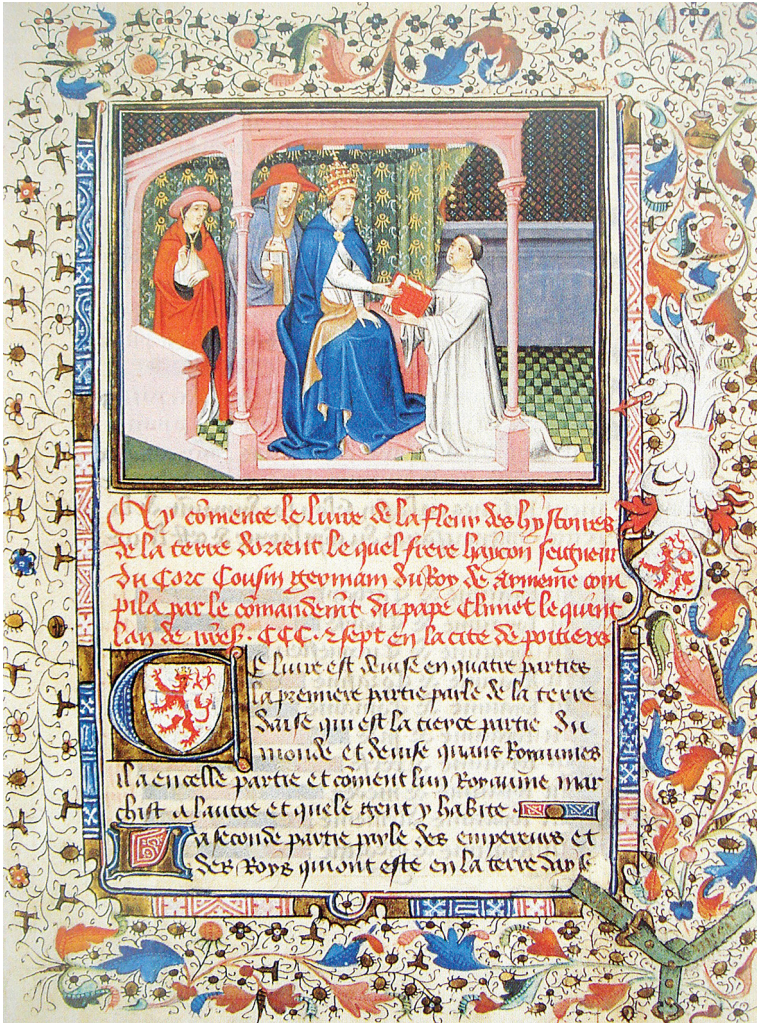 Cy cōmence le liure de la fleur des hystoires
de la terre dorient le quel frere haycon seigneur
du Corc Cousin germain du Roy de Armenie com
pila par le cōmandemēt du pape Climēt le quint
lan de nrēs. CCC. & sept en la cite de poitiers
Ce liure est deuise en quatre parties
la premiere partie parle de la terre
dayse qui est la tierce partie du
monde et deuise quans Royaumes
il a en celle partie et cōment lun Royaume mar
chist a lautre et quele gent y habite.
La seconde partie parle des empereurs et
des Roys qui ont este en la terre dayse